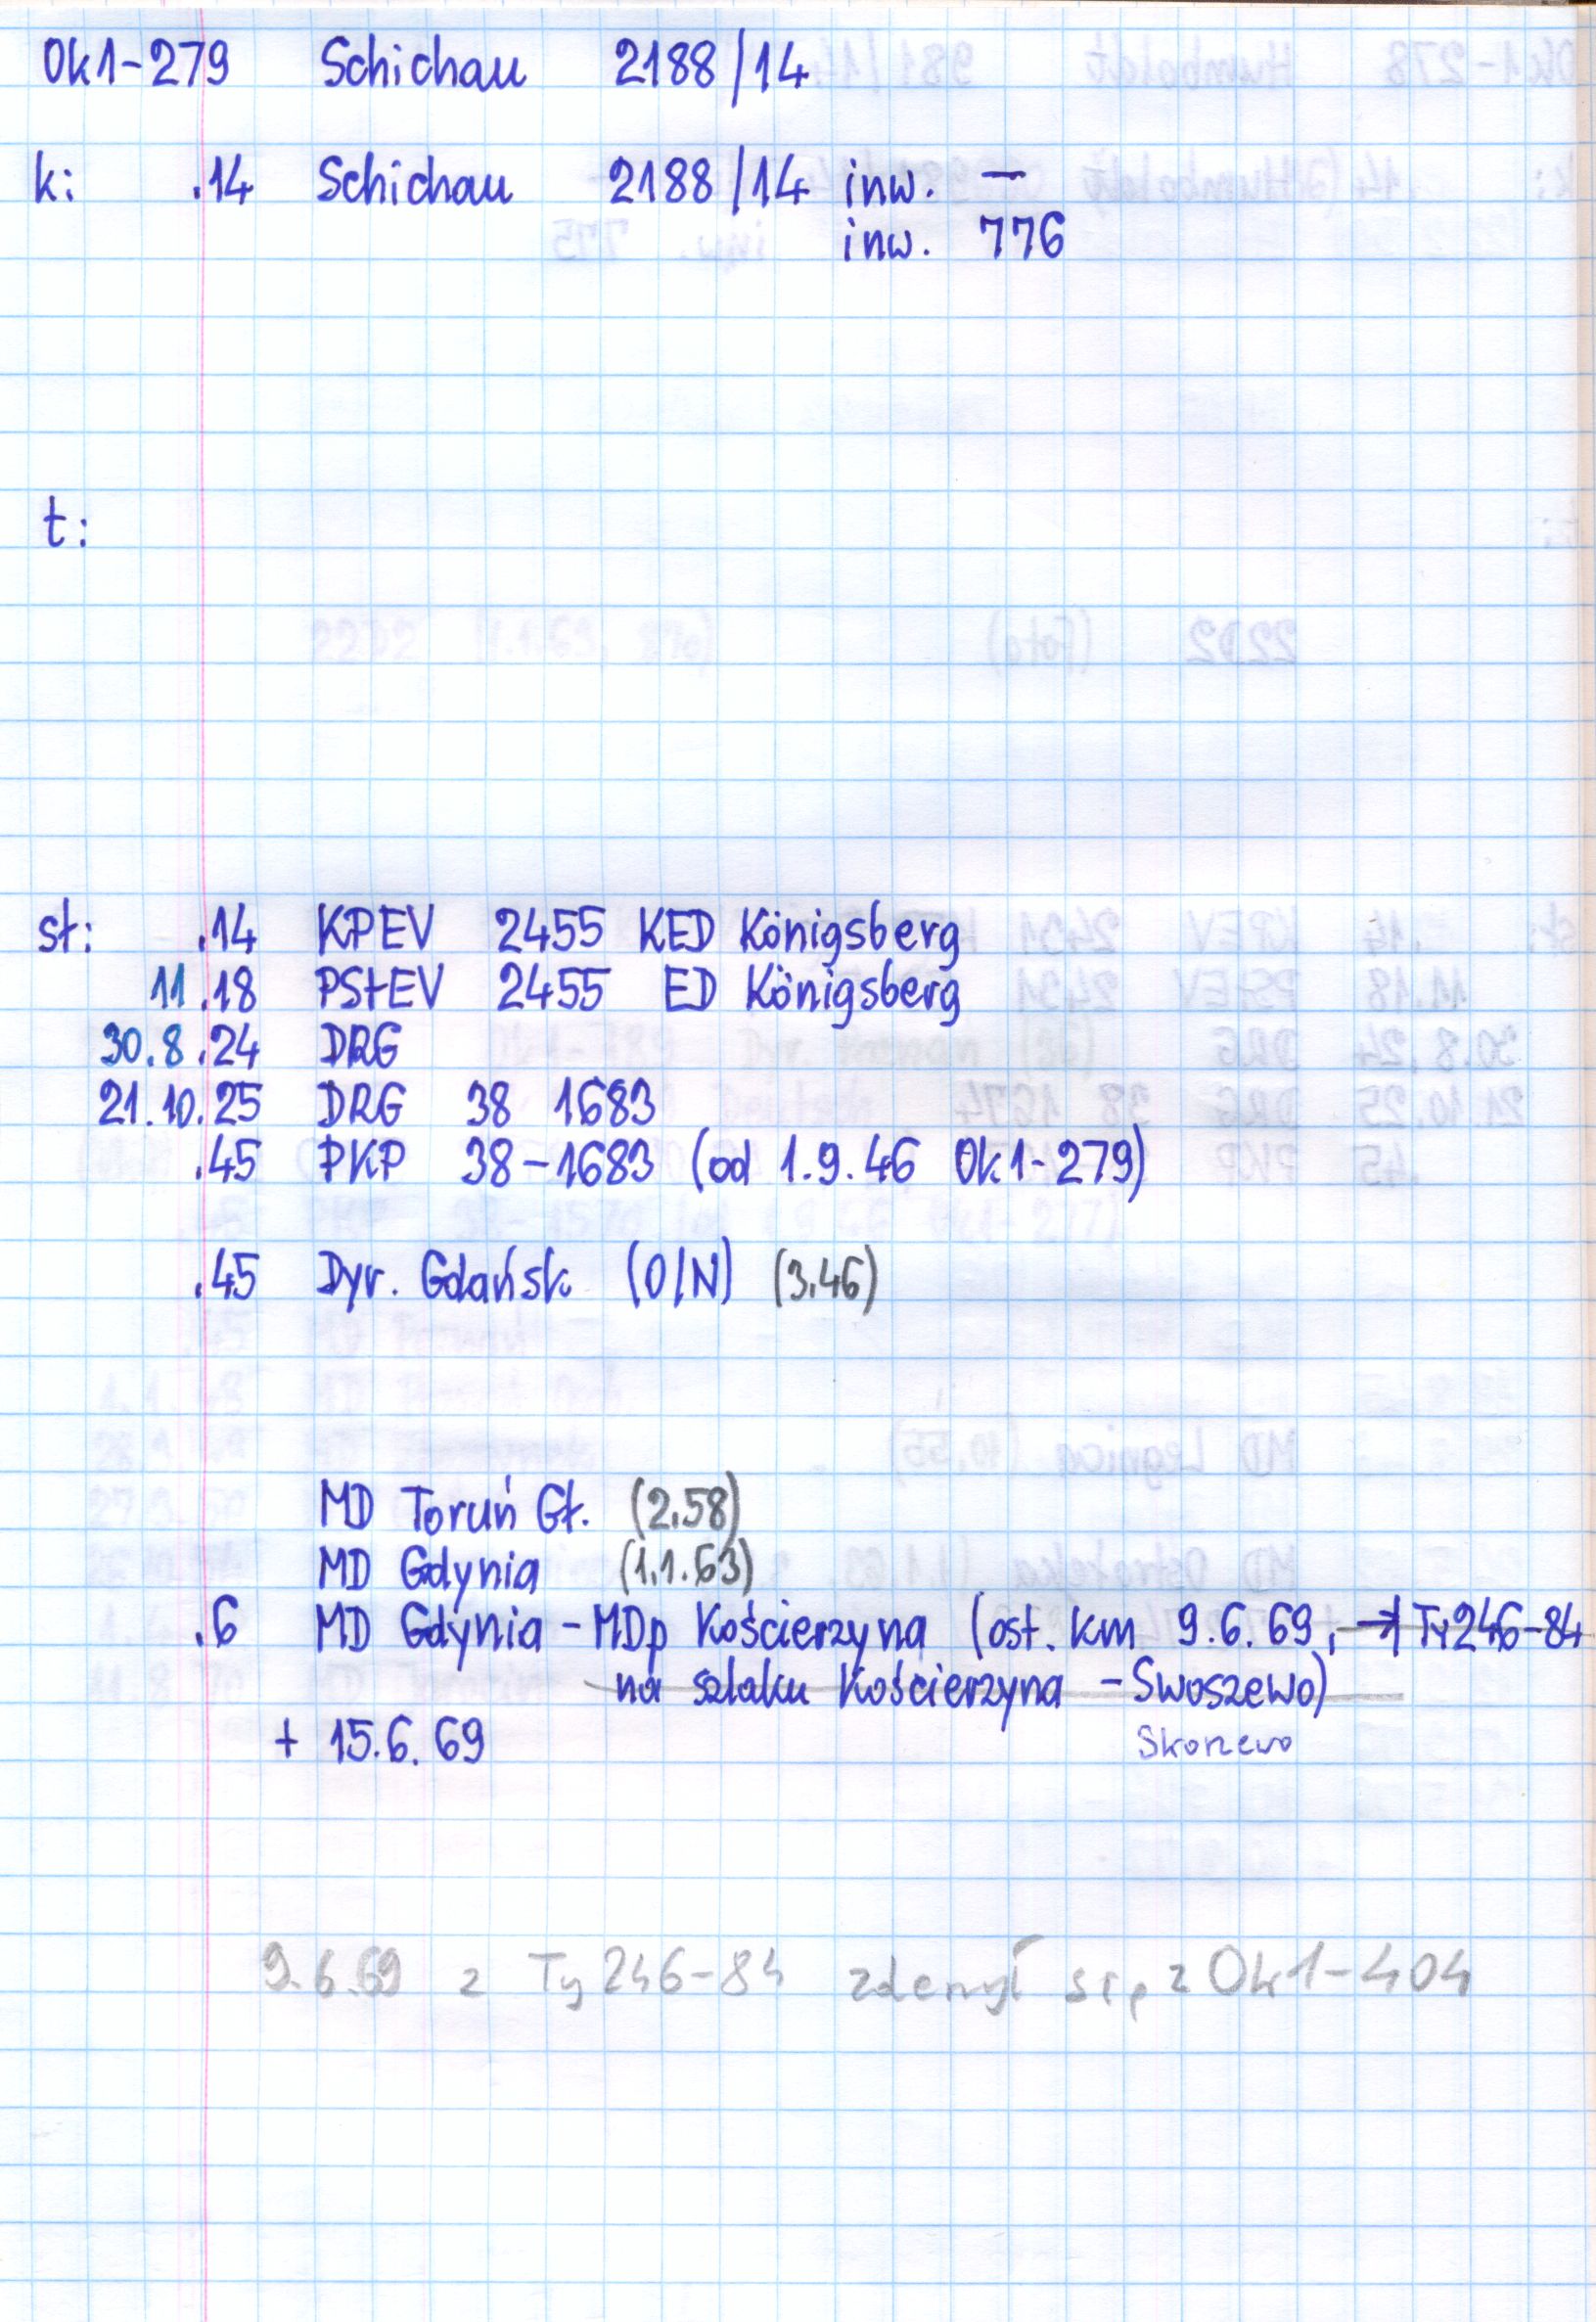 Ok1-279 Schichau 2188/14
k: .14 Schichau 2188/14 inw. —
inw. 776
t:
st: .14 KPEV 2455 KED Königsberg
11.18 PStEV 2455 ED Königsberg
30.8.24 DRG
21.10.25 DRG 38 1683
.45 PKP 38-1683 (od 1.9.46 Ok1-279)
.45 Dyr. Gdańsk (O/N) (3.46)
MD Toruń Gł. (2.58)
MD Gdynia (1.1.63)
.6 MD Gdynia - MDp Kościerzyna (ost. km 9.6.69, → Ty246-84
na szlaku Kościerzyna - Swoszewo)
Skorzewo
+ 15.6.69
9.6.69 z Ty246-84 się z Ok1-404